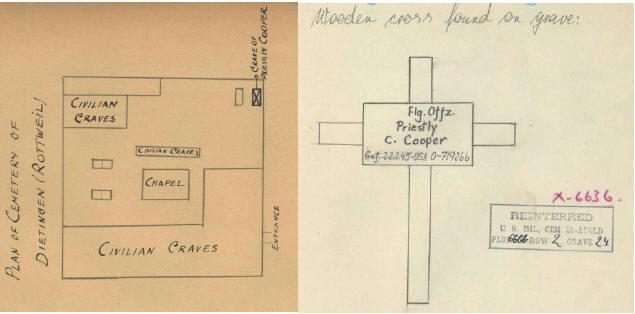 PLAN OF CEMETERY OF
DIETINGEN (ROTTWEIL)
GRAVE OF
PRIESTLY COOPER
CIVILIAN
GRAVES
CIVILIAN GRAVES
CHAPEL
CIVILIAN GRAVES
ENTRANCE
Wooden cross found on grave:
Flg. Offz.
Priestly
C. Cooper
Gef. 22.2.45-USA O-719266
X-6636.
REINTERRED
U. S. MIL. CEM. St-AVOLD
PLOT ROW 2 GRAVE 24